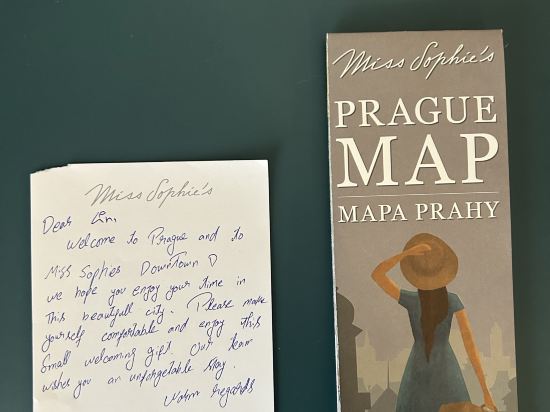 Miss Sophie's
Dear Lin,
Welcome to Prague and to
Miss Sophies Downtown
we hope you enjoy your time in
this beautifull city. Please make
yourself comfortable and enjoy this
small welcoming gift. Our team
wishes you an unforgetable stay.
Warm regards
Miss Sophie's
PRAGUE
MAP
MAPA PRAHY